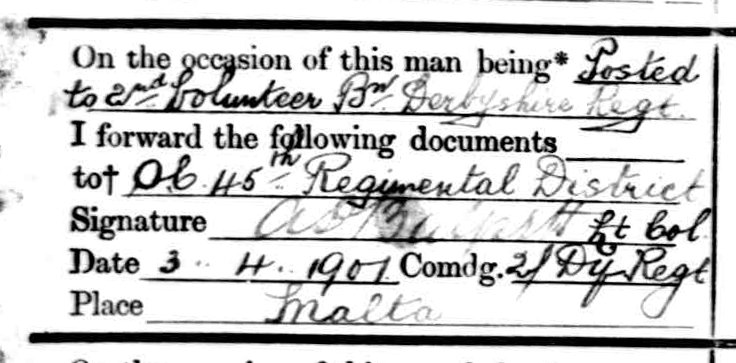 On the occasion of this man being* Posted
to 2nd Volunteer Bn Derbyshire Regt.
I forward the following documents
to† O.C. 45th Regimental District
Signature Lt Col
Date 3. 4. 1901 Comdg. 2/ Dy Regt
Place Malta